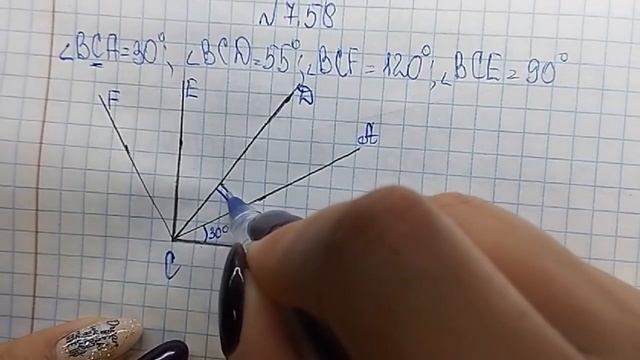 № 7.58
∠BCA=30°; ∠BCD=55°; ∠BCF=120°; ∠BCE=90°
F E D A
30°
C